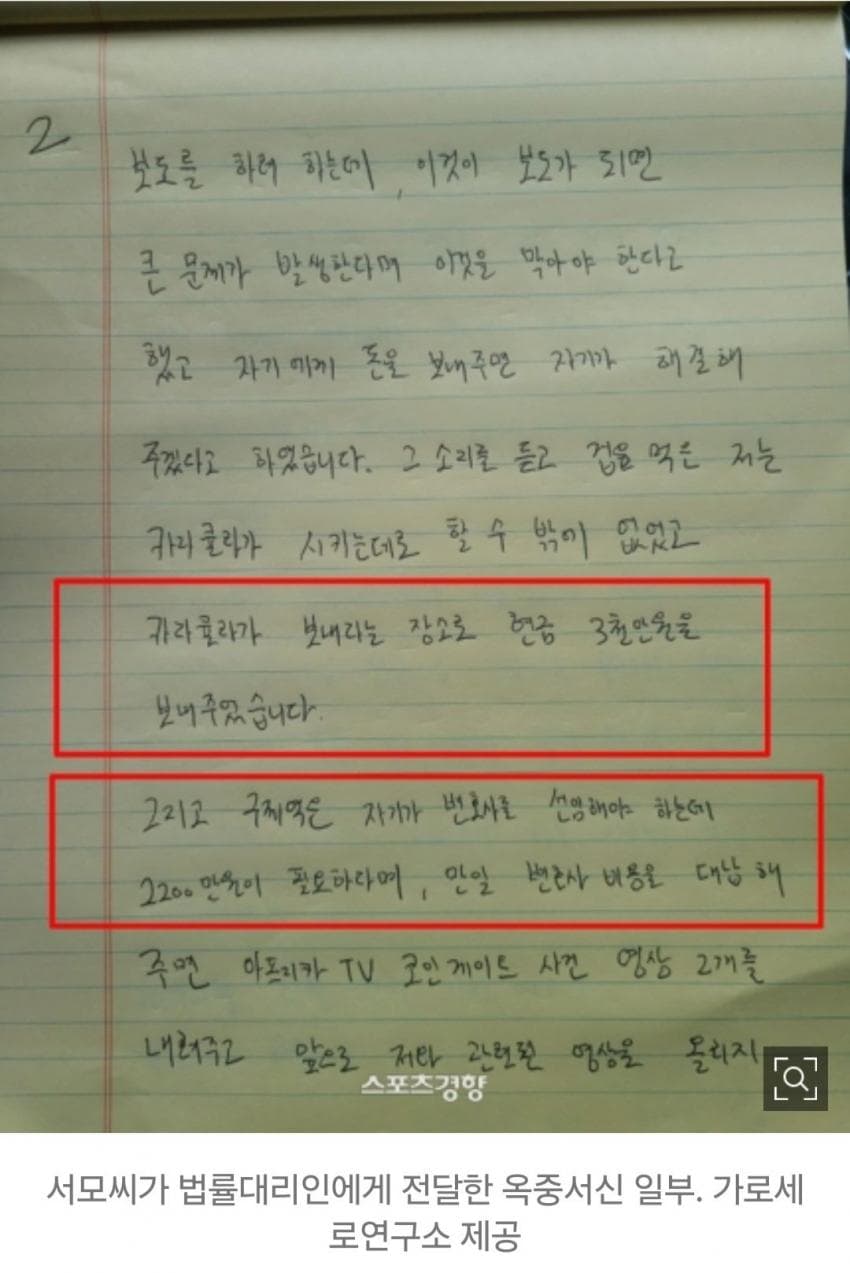 2
보도를 하려 하는데, 이것이 보도가 되면
큰 문제가 발생한다며 이것을 막아야 한다고
했고 자기에게 돈을 보내주면 자기가 해결해
주겠다고 하였습니다. 그 소리를 듣고 겁을 먹은 저는
카라큘라가 시키는데로 할 수 밖에 없었고
카라큘라가 보내라는 장소로 현금 3천만원을
보내주었습니다.
그리고 구제역은 자기가 변호사를 선임해야 하는데
2200만원이 필요하다며, 만일 변호사 비용을 대납해
주면 아프리카TV 코인게이트 사건 영상 2개를
내려주고 앞으로 저와 관련된 영상을 올리지
스포츠경향
서모씨가 법률대리인에게 전달한 옥중서신 일부. 가로세
로연구소 제공